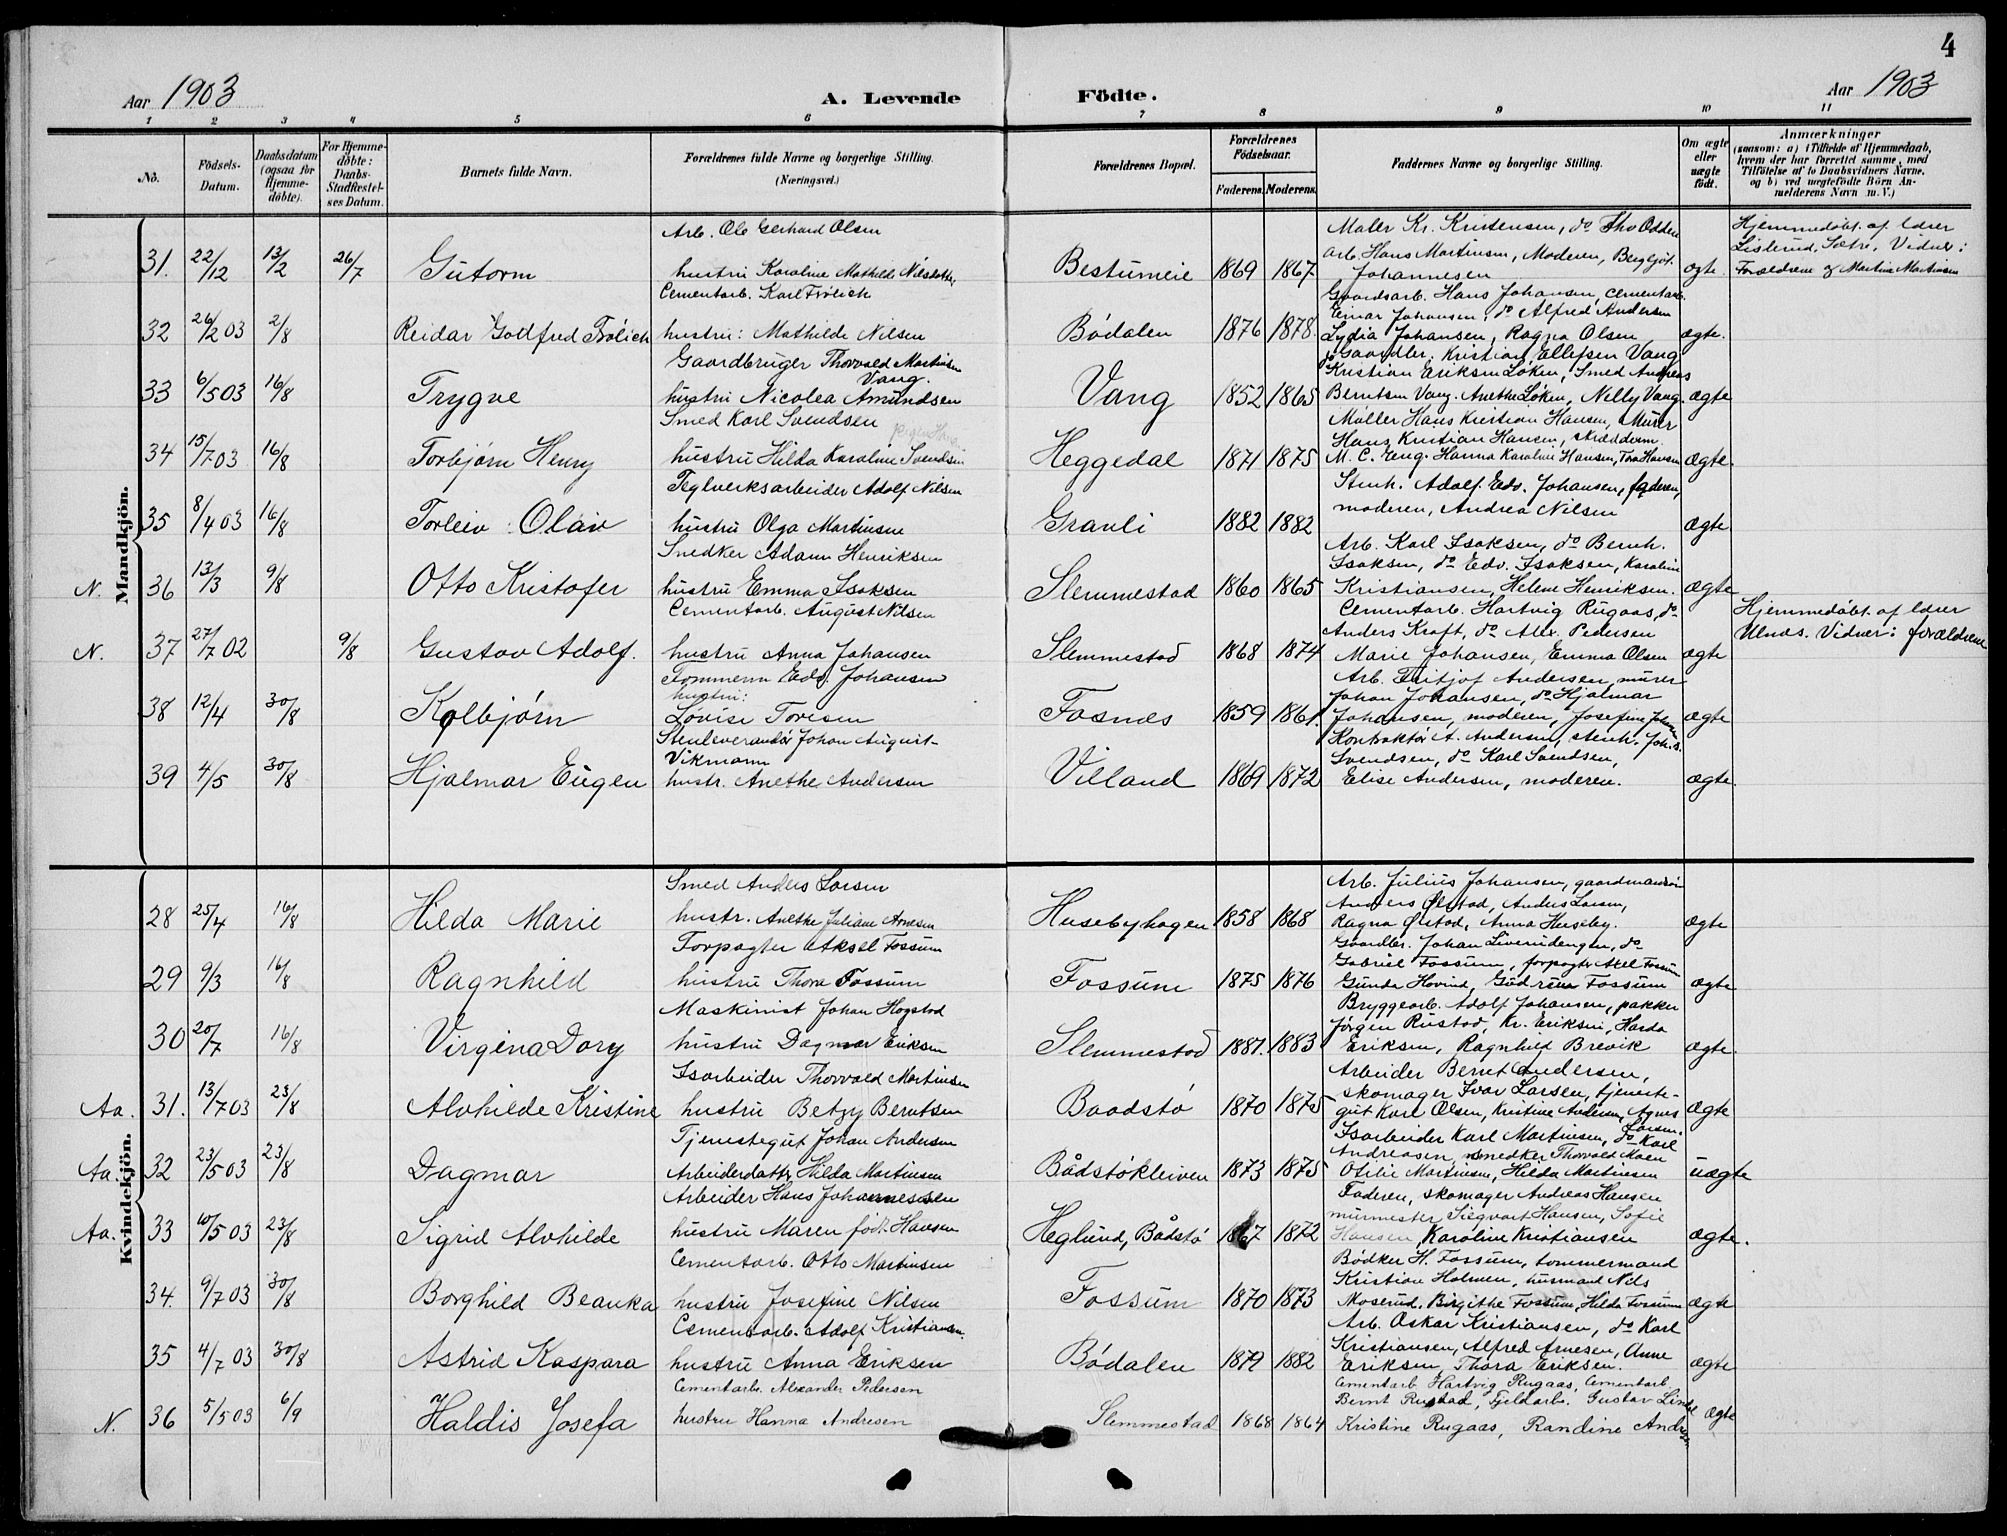 4
Aar 1903
A. Levende Födte.
Aar 1903
1 2 3 4 5 6 7 8 9 10 11
No.
Födsels-Datum.
Daabsdatum (ogsaa for Hjemme-döbte).
For Hjemme-döbte: Daabs-Stadfæstel-ses Datum.
Barnets fulde Navn.
Forældrenes fulde Navne og borgerlige Stilling. (Næringsvei.)
Forældrenes Bopæl.
Forældrenes Födselsaar.
Faderens. Moderens.
Faddernes Navne og borgerlige Stilling.
Om ægte eller uægte födt.
Anmærkninger
(saasom: a) i Tilfælde af Hjemmedaab,
hvem der har forrettet samme, med
Tilföielse af to Daabsvidners Navne,
og b) ved uægtefödte Börn An-
melderens Navn m. V.)
Mandkjön.
Arb. Ole Gerhard Olsen
Maler Kr. Kristensen, do Tho Odden
Hjemmedöbt af lærer
Arb. Hans Martinsen, Moderen, Bergljot
Listerud, Sætre. Vidner:
31. 22/12 13/2 26/7 Gutorm hustru Karoline Mathilde Nilsdatter, Bestumeie 1869 1867 Johannesen ægte Forældrene og Martine Martinsen
Cementarb. Karl Frölich
Gaardsarb. Hans Johansen, Cementarb.
Einar Johansen, do Alfred Andersen
32 26/2 03 2/8 Reidar Godtfred Frölich hustru: Mathilde Nilsen Bödalen 1876 1878. Lydia Johansen, Ragna Olsen ægte.
Gaardbruger Thorvald Martinsen Vang.
Gaardbr. Kristian Ellefsen Vang
do Kristian Eriksen Löken, Smed Andreas
33 6/5 03 16/8 Trygve hustru Nicolea Amundsen Vang 1852 1865 Berntsen Vang. Anethe Löken, Nelly Vang. ægte
Smed Karl Svendsen
Möller Hans Kristian Hansen, Murer
Hans Kristian Hansen, skrædderm.
34 15/7 03 16/8 Torbjörn Henry hustru Hilda Karoline Svendsen Heggedal 1871 1875 M. C. Eng. Hanna Karoline Hansen, Tora Hansen ægte.
Teglverksarbeider Adolf Nilsen
Stenh. Adolf Edv. Johansen, faderen,
35 8/4 03 16/8 Torleiv Olav hustru Olga Martinsen Granli 1882 1882 moderen, Andrea Nilsen ægte
Snedker Adam Henriksen
Arb. Karl Isaksen, do Bernh.
Isaksen, do Edv. Isaksen, Karoline
N. 36 13/3 9/8 Otto Kristofer hustru Emma Isaksen Slemmestad 1860 1865 Kristiansen, Helene Henriksen. ægte
Cementarb. August Nilsen
Cementarb. Hartvig Rugaas, do
Hjemmedöbt af lærer
Anders Kraft, do Alex. Pedersen
Ulnæs. Vidner: forældrene
N. 37 27/7 02 9/8 Gustav Adolf. hustru Anna Johansen Slemmestad 1868 1874 Marie Johansen, Emma Olsen ægte
Tömmerm Edv. Johansen
Arb. Fritjof Andersen, murer
hustru:
Johan Johansen, do Hjalmar
38 12/4 30/8 Kolbjörn Lovise Toresen Fosnæs 1859 1861. Johansen, moderen, Josefine Johnsen ægte
Stenleverandör Johan August Vikmann
Kontraktör A. Andersen, stenh. Joh. S.
Svendsen, do Karl Svendsen,
39 4/5 30/8 Hjalmar Eugen hustr. Anethe Andersen Villand 1869 1872 Elise Andersen, moderen. ægte.
Kvindekjön.
Smed Anders Larsen
Arb. Julius Johansen, gaardmandsön
Anders Ölstad, Anders Larsen,
28 25/4 16/8 Hilda Marie hustr. Anethe Juliane Arnesen Husebyhagen 1858 1868 Ragna Ölstad, Anna Huseby. ægte
Forpagter Aksel Fossum
Gaardbr. Johan Liverudengen, do
Gabriel Fossum, forpagter Axel Fossum
29 9/3 16/8 Ragnhild hustru Thora Fossum Fossum 1875 1876 Gunda Hovind, Gudrun Fossum ægte
Maskinist Johan Hogstad
Bryggearb. Adolf Johansen, pakker
Jörgen Rustad, Kr. Eriksen, Harda
30 20/7 16/8 Virgena Dory hustru Dagmar Eriksen Slemmestad 1881. 1883 Eriksen, Ragnhild Brevik ægte.
Isarbeider Thorvald Martinsen
Arbeider Bernt Andersen,
skomager Ivar Larsen, tjeneste-
Aa. 31. 13/7 03 23/8 Alvhilde Kristine hustru Betzy Berntsen Baadstö 1870 1875 gut Karl Olsen, Kristine Andersen, Agnes Larsen. ægte
Tjenestegut Johan Andersen
Isarbeider Karl Martinsen, do Karl
Andreasen, snedker Thorvald Moen
Aa. 32 23/5 03 23/8 Dagmar Arbeiderdatter Hilda Martinsen Bådstökleiven 1873 1875 Otilie Martinsen, Hilda Martinsen uægte
Arbeider Hans Johannessen
Faderen, skomager Andreas Hansen
murmester Siegvart Hansen, Sofie
Aa. 33 10/5 03 23/8 Sigrid Alvhilde hustru Maren födt Hansen Heglund, Bådstö 1867 1872 Hansen, Karoline Kristiansen ægte.
Cementarb. Otto Martinsen
Bödker H. Fossum, tömmermand
Kristian Holmen, husmand Nils
34. 9/7 03 30/8 Borghild Beanka hustru Josefine Nilsen Fossum 1870 1873 Moserud. Birgithe Fossum, Hilda Fossum ægte
Cementarb. Adolf Kristiansen.
Arb. Oskar Kristiansen, do Karl
Kristiansen, Alfred Arnesen, Anne
35 4/7 03 30/8 Astrid Kaspara hustru Anna Eriksen Bödalen 1879 1882 Eriksen, Thora Eriksen. ægte
Cementarb. Alexander Pedersen
Cementarb Hartvig Rugaas, Cementarb.
Bernt Rustad, Fjeldarb. Gustav Linde
N. 36 5/5 03 6/9 Haldis Josefa hustru Hanna Andresen Slemmestad 1868 1864 Kristine Rugaas, Randine Andr. ægte